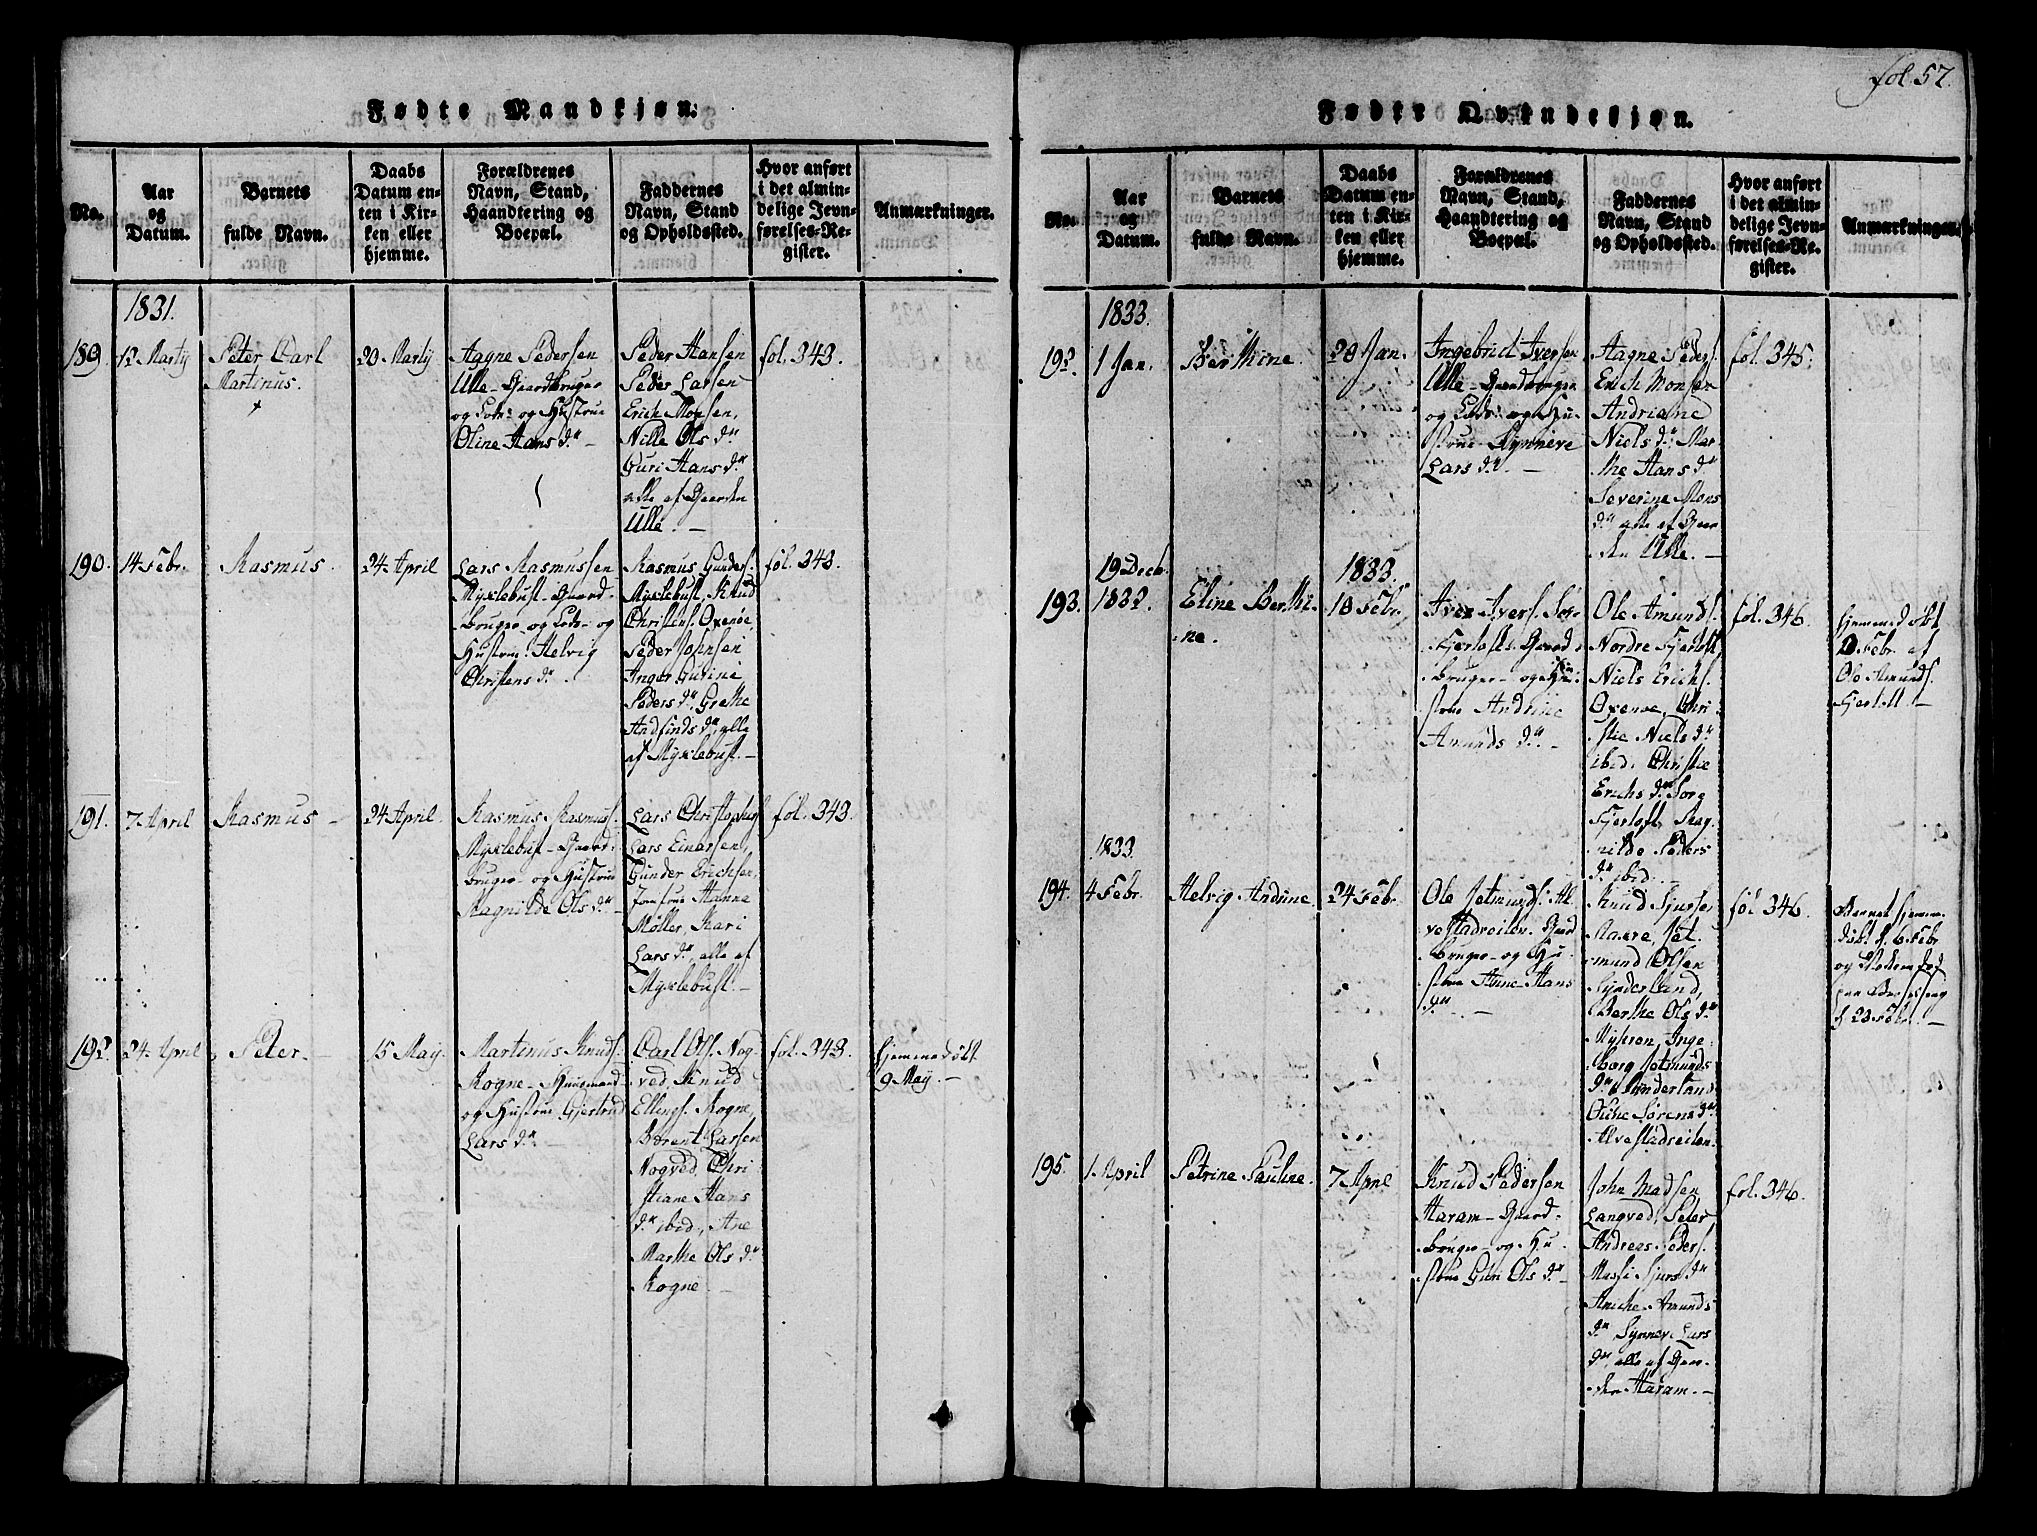 fol. 57.
Fødte Mandkjøn.
No.
Aar
og
Datum.
Barnets
fulde Navn.
Daabs
Datum en-
ten i Kir-
ken eller
hjemme.
Forældrenes
Navn, Stand,
Haandtering og
Boepæl.
Faddernes
Navn, Stand
og Opholdssted.
Hvor anført
i det almin-
delige Jevn-
førelses-Re-
gister.
Anmærkninger.
1831.
189.
12 Martij
Peter Carl
Martinus.
20 Martij
Aagne Pedersen
Ulle - Gaardbruger
og Lods - og Hustrue
Oline Hans dr. -
Peder Hansen
Peder Larsen
Erich Monsen,
Nille Ols dr.
Guri Hans dr.
alle af Gaarden
Ulle. -
fol. 343.
190.
14 Febr.
Rasmus.
24 April
Lars Rasmussen
Myxlebust - Gaard-
bruger og Lods - og
Hustrue Helvig
Christens dr.
Rasmus Gunders.
Myxlebust, Knud
Christens. Oxenøe
Peder Johnsen
Inger Gurine
Peders dr. Grethe
Andfinds dr., alle
af Myxlebust. -
fol. 343.
191.
7 April
Rasmus -
24 April.
Rasmus Rasmuss.
Myxlebust - Gaard-
bruger - og Hustrue
Magnilde Ols dr. -
Lars Christophers.
Lars Einarsen,
Gunder Erichsen,
Jomfrue Hanne
Møller, Kari
Lars dr., alle af
Myxlebust -
fol. 343.
192.
24 April
Peter -
15 May.
Martinus Knuds.
Rogne - Huusmand
og Hustrue Gjertrud
Lars dr. -
Carl Ols. Nog-
ved, Knud
Ellings. Rogne,
Berent Larsen
Nogved, Chri-
stiane Hans
dr. ibid., Ane
Marthe Ols dr.
Rogne. -
fol. 343.
hjemmedøbt
9 May. -
Fødte Qvindekjøn.
No.
Aar
og
Datum.
Barnets
fulde Navn.
Daabs
Datum en-
ten i Kir-
ken eller
hjemme.
Forældrenes
Navn, Stand,
Haandtering og
Boepæl.
Faddernes
Navn, Stand
og Opholdssted.
Hvor anført
i det almin-
delige Jevn-
førelses-Re-
gister.
Anmærkninger.
1833.
192.
1 Jan.
Berthine
28 Jan.
Ingebrid Iversen
Ulle - Gaardbruger
og Lods - og Hu-
strue Synneve
Lars dr. -
Aagne Peders.
Erich Monsen
Andriane
Niels dr. Mar-
the Hans dr.
Severine Mons
dr. alle af Gaar-
den Ulle. -
fol. 345.
19 Decb.
193.
1832.
Eline Berthi-
ne.
1833.
18 Febr.
Iver Ivers. Sør-
Fjertoft - Gaard-
bruger - og Hu-
strue Andrine
Amunds dr. -
Ole Amunds.
Nordre Fjertoft,
Niels Erichs.
Oxenøe, Chri-
stie Niels dr.
ibid. Christie
Erichs dr. Sørg
Fjertoft, Rag-
nilde Peders
dr. ibid. -
fol. 346.
hjemmedøbt
2 Febr. af
Ole Amunds.
Fjertoft -
1833.
194.
4 Febr.
Helvig Andrine
24 Febr.
Ole Jetmunds. Al-
vestadreiten. Gaard-
bruger - og Hu-
strue Anne Hans
dr. -
Knud Sjursen
Aakre, Jet-
mund Olsen
Synderland,
Berthe Ols dr.
Nystøen, Inge-
borg Jetmunds
dr. Sønderland
Oline Sørens dr.
Alvestadreiten.
fol. 346.
Barnet hjemme-
døbt d. 6 Febr.
195.
1 April
Petrine Pauline.
7 April
Knud Pedersen
Haram - Gaard-
bruger - og Hu-
strue Guri Ols dr. -
John Madsen
Langved, Peter
Andreas Peders.
Massi Sjurs dr.
Aniche Amunds
dr. Synnev Lars
dr., alle af Gaar-
den Haram. -
fol. 346.